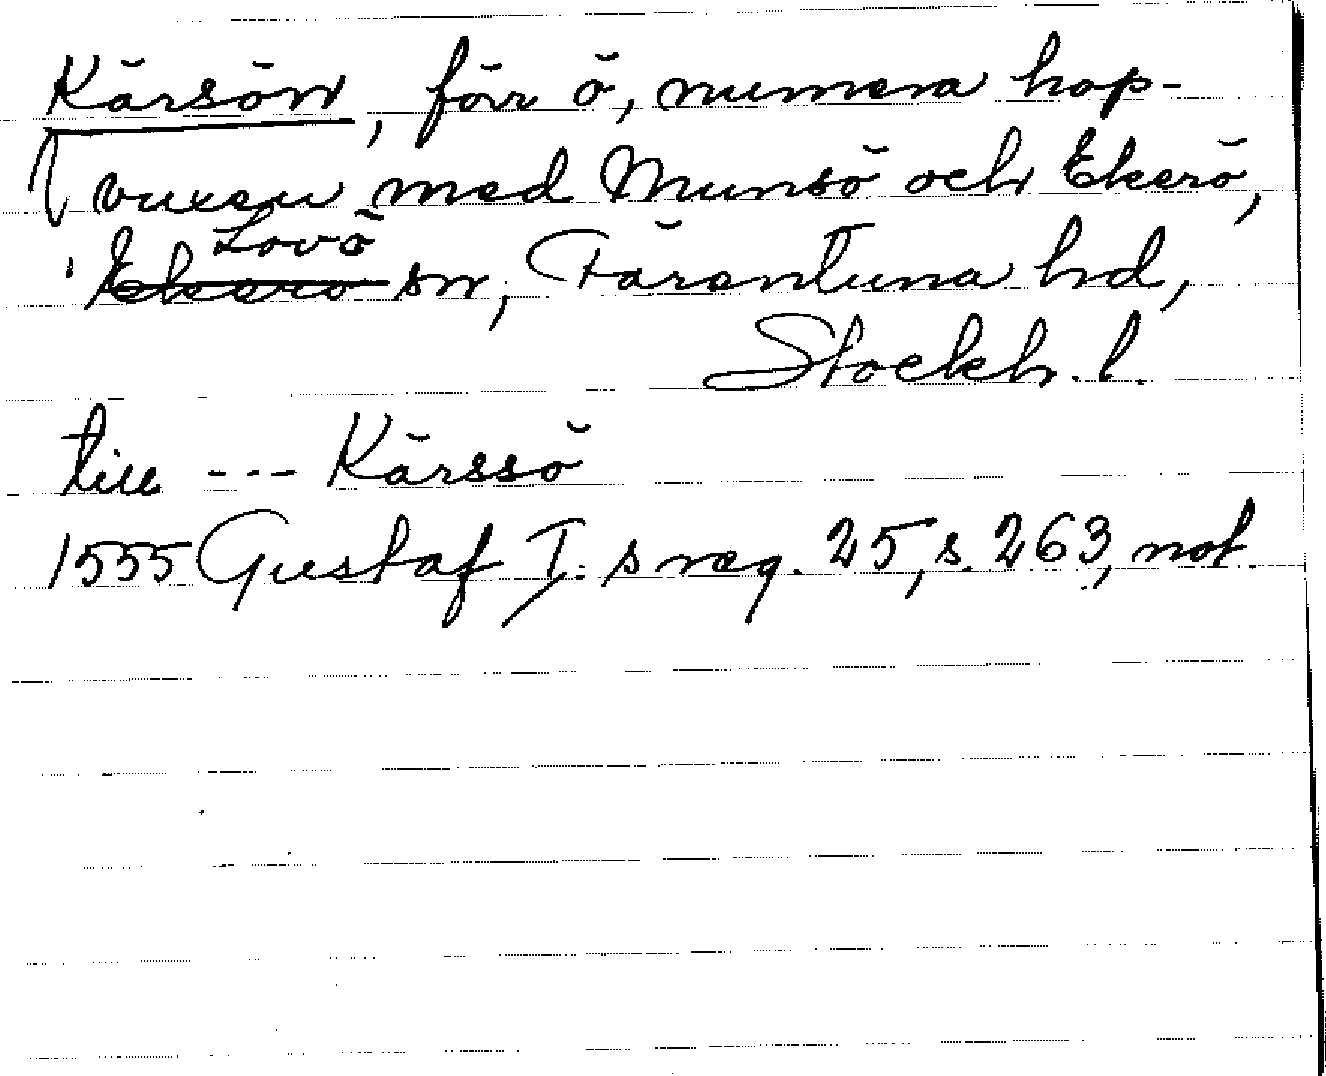 Kärsön, förr ö, numera hop-
vuxen med Munsö och Ekerö,
Lovö
Ekerö sn, Färentuna hd,
Stockh. l.
till --- Kärssö
1555 Gustaf I:s reg. 25, s. 263, not.